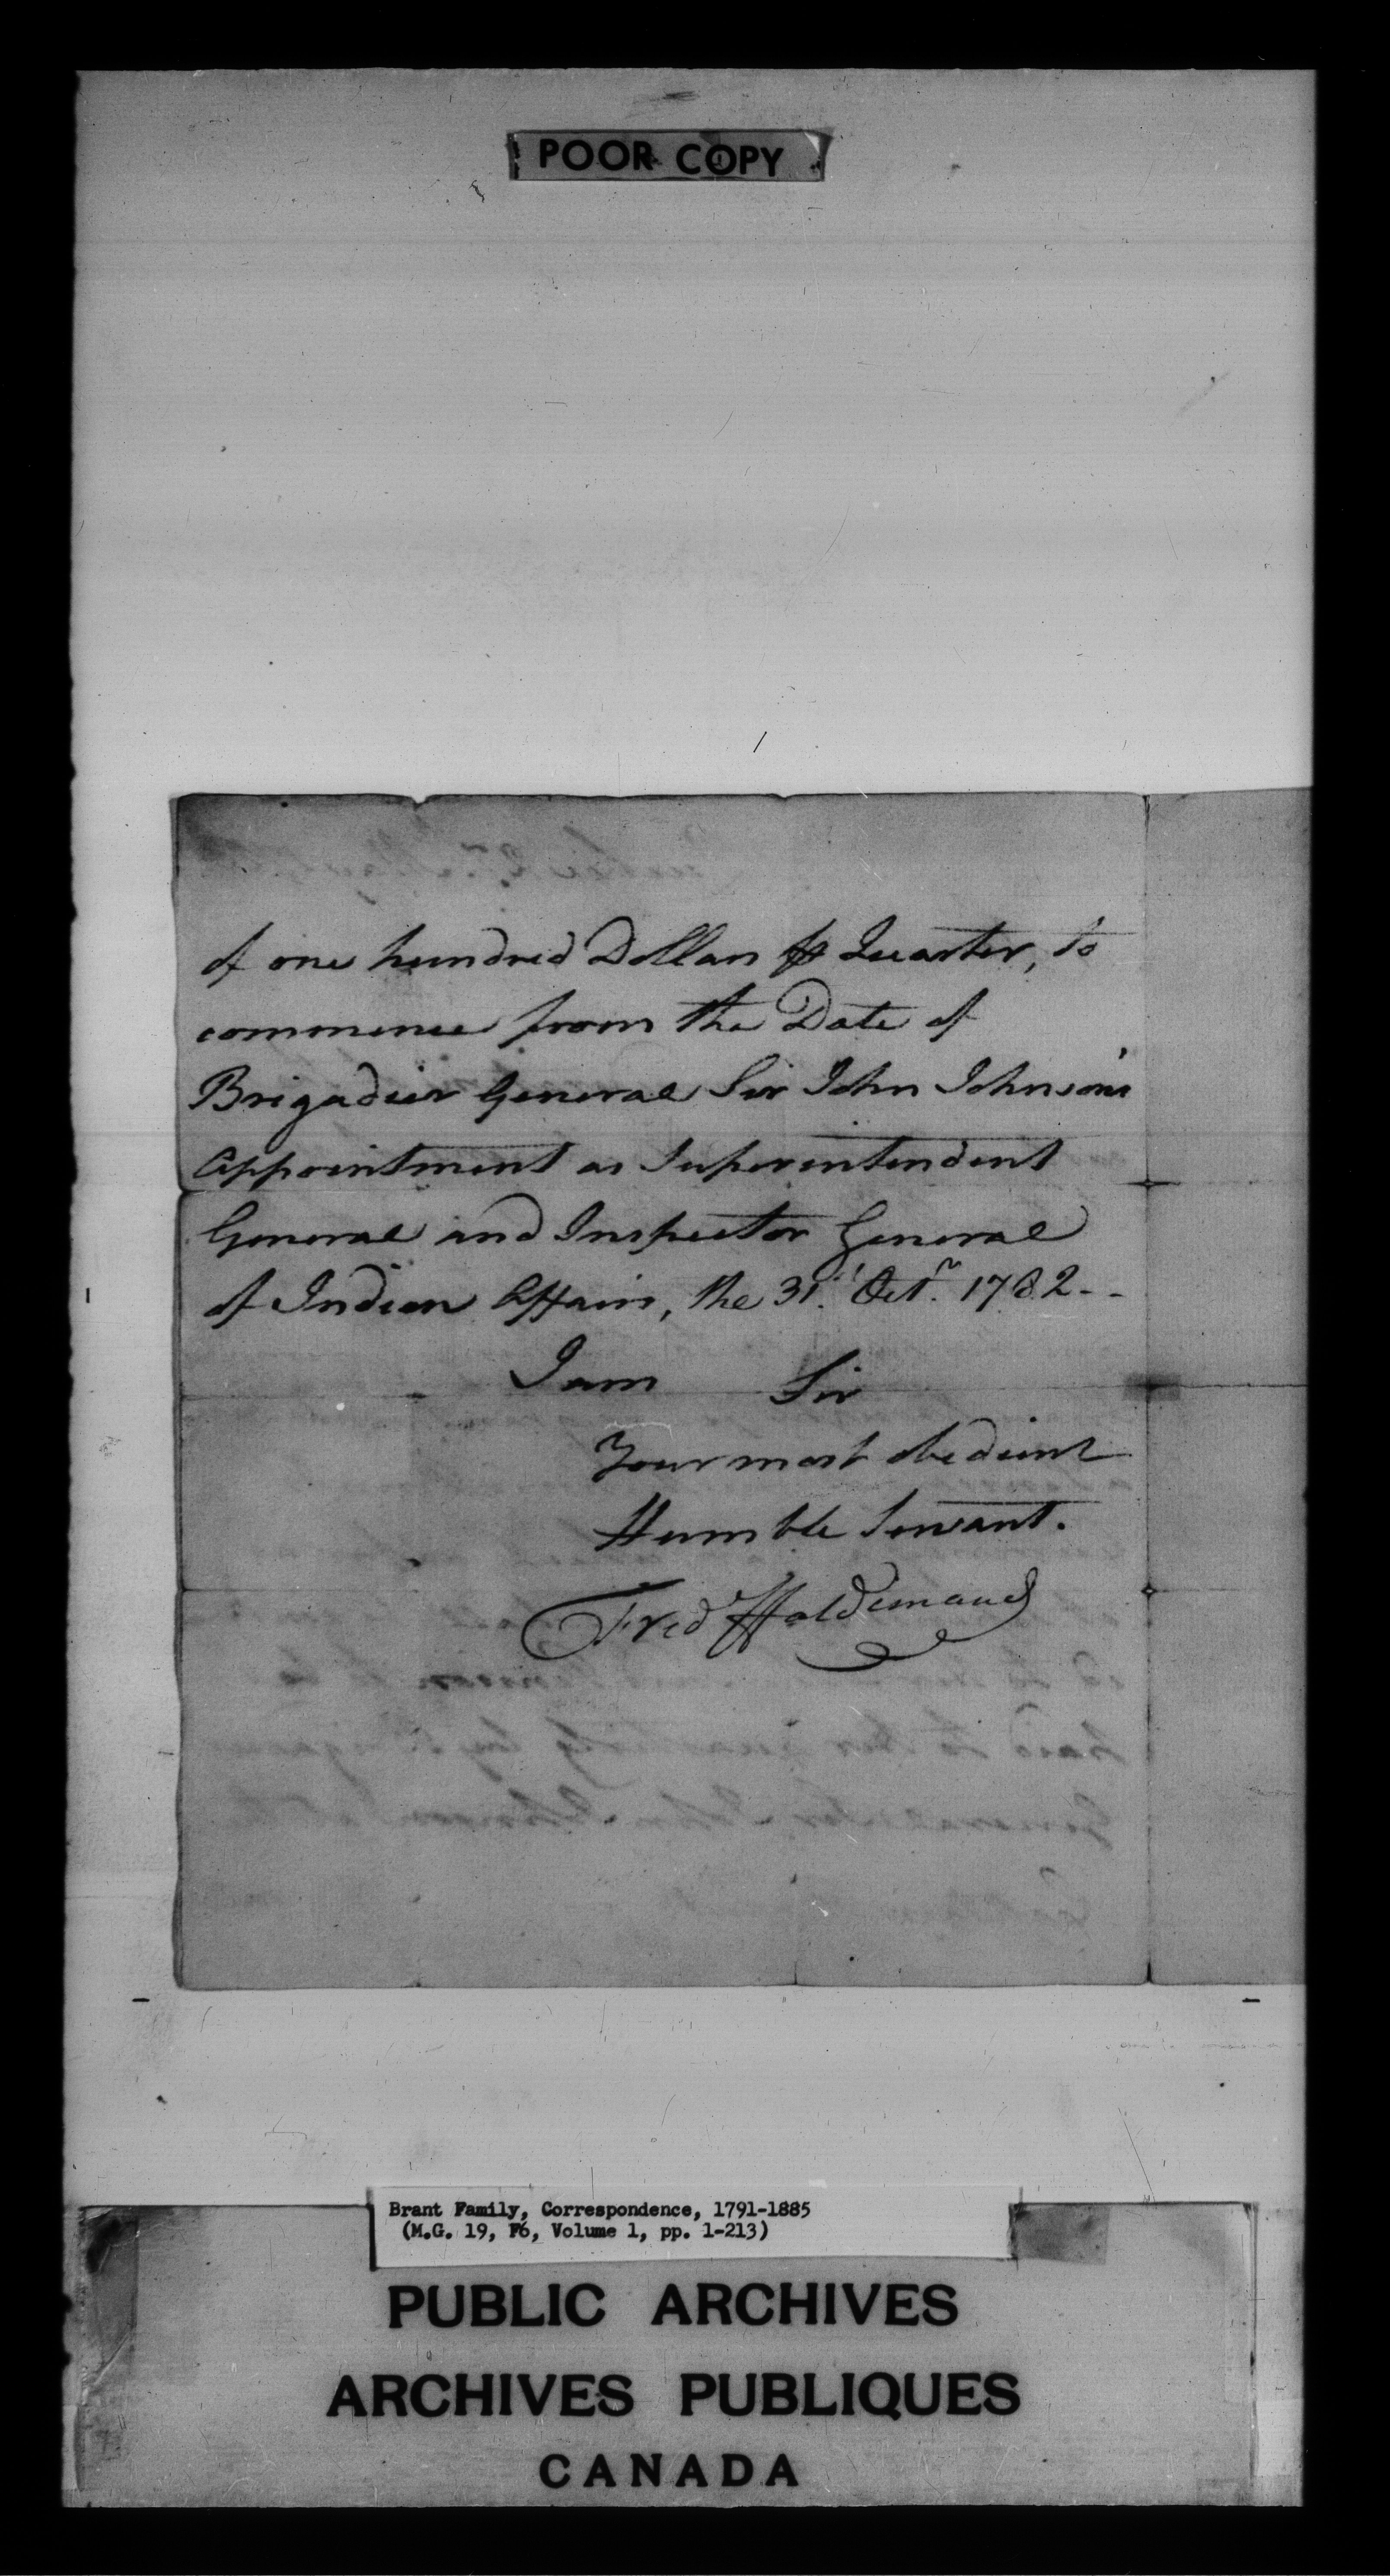 POOR COPY
of one hundred Dollars ⅌ Quarter, to
commence from the Date of
Brigadier General Sir John Johnson's
Appointment as Superintendent
General and Inspector General
of Indian Affairs, the 31st Octr. 1782--
I am Sir
Your most obedient
Humble Servant.
Fred Haldimand
Brant Family, Correspondence, 1791-1885
(M.G. 19, F6, Volume 1, pp. 1-213)
PUBLIC ARCHIVES
ARCHIVES PUBLIQUES
CANADA